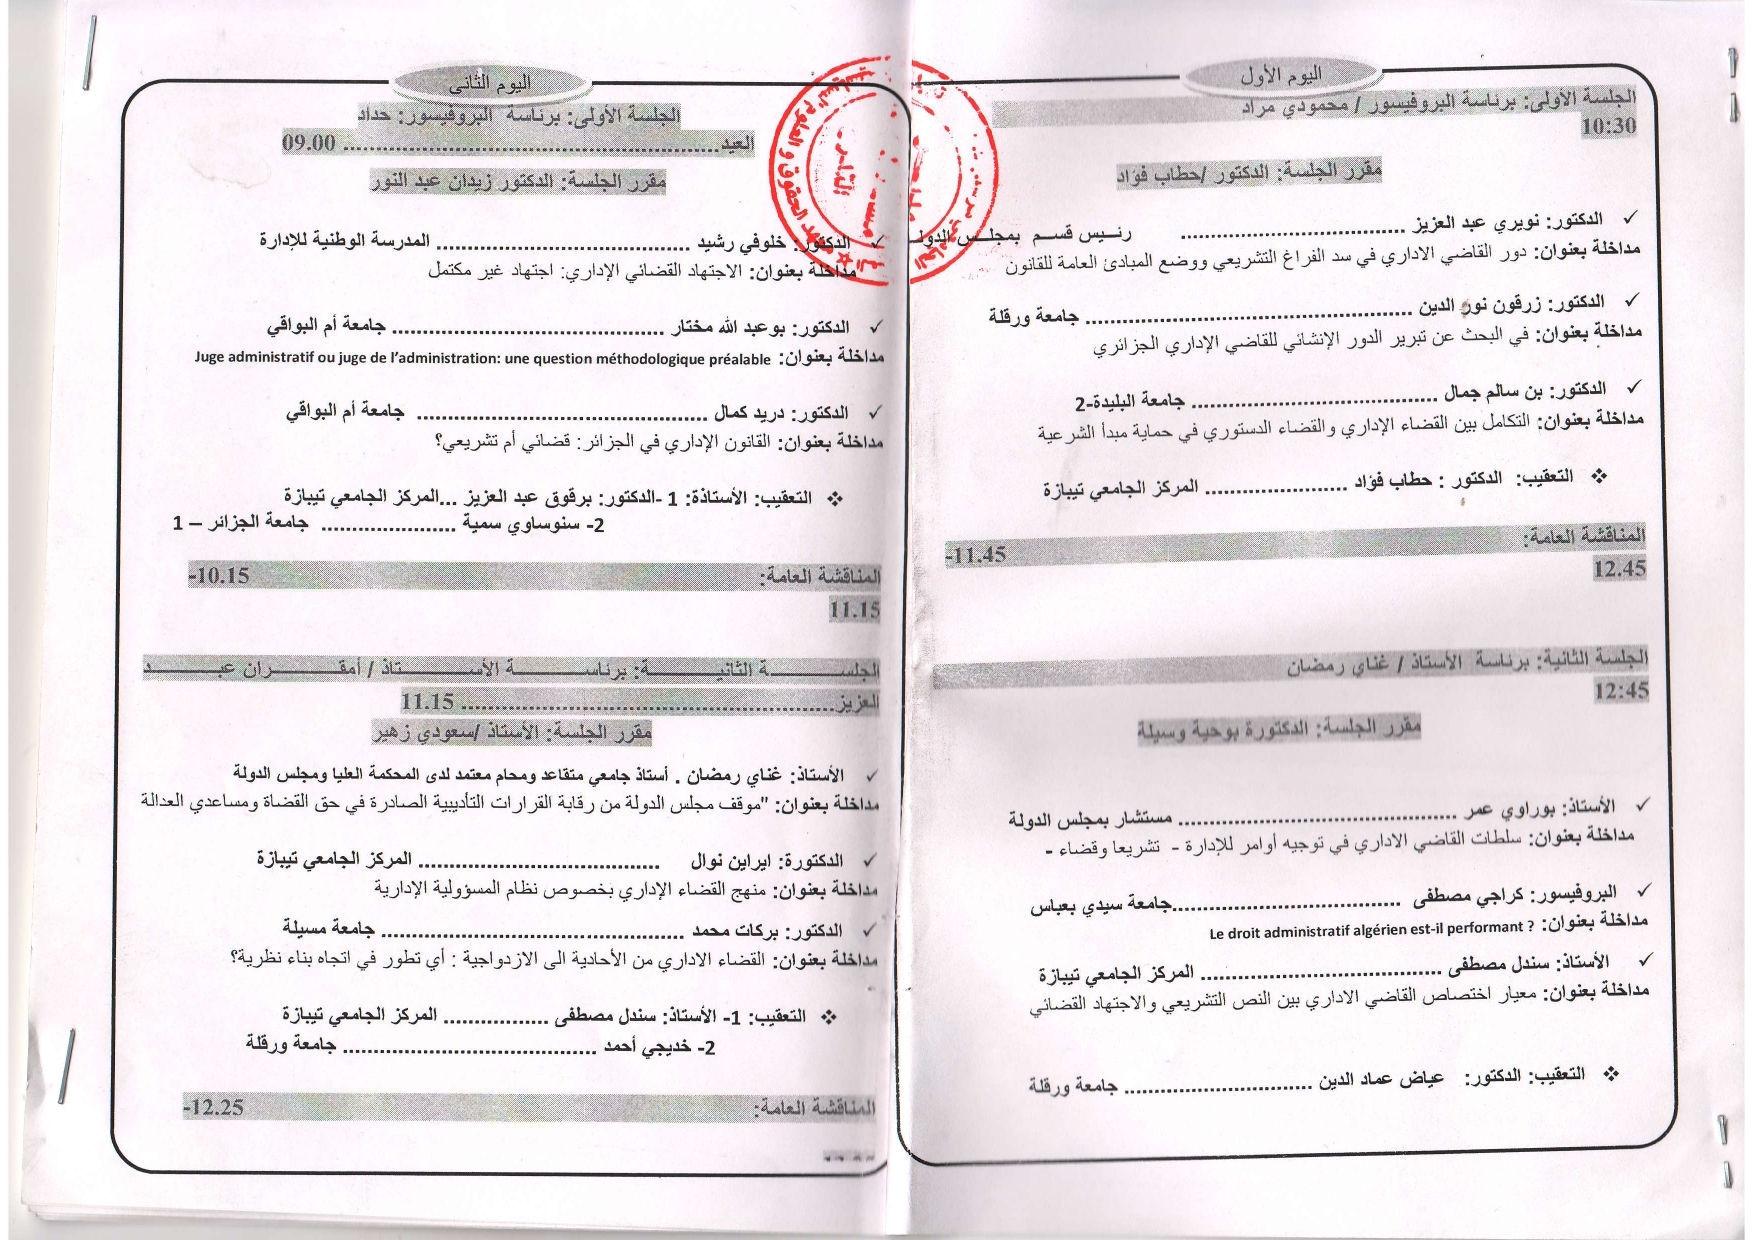 اليوم الأول
الجلسة الأولى: برئاسة البروفيسور / محمودي مراد
10:30
مقرر الجلسة: الدكتور /حطاب فؤاد
✓ الدكتور: نويري عبد العزيز ........................................ رئــيس قســم بمجلــس الدولـ
مداخلة بعنوان: دور القاضي الاداري في سد الفراغ التشريعي ووضع المبادئ العامة للقانون
✓ الدكتور: زرقون نور الدين ........................................ جامعة ورقلة
مداخلة بعنوان: في البحث عن تبرير الدور الإنشائي للقاضي الإداري الجزائري
✓ الدكتور: بن سالم جمال ........................................ جامعة البليدة-2
مداخلة بعنوان: التكامل بين القضاء الإداري والقضاء الدستوري في حماية مبدأ الشرعية
❖ التعقيب: الدكتور : حطاب فؤاد ........................ المركز الجامعي تيبازة
المناقشة العامة: 11.45-
12.45
الجلسة الثانية: برئاسة الأستاذ / غناي رمضان
12:45
مقرر الجلسة: الدكتورة بوحية وسيلة
✓ الأستاذ: بوراوي عمر ........................................ مستشار بمجلس الدولة
مداخلة بعنوان: سلطات القاضي الاداري في توجيه أوامر للإدارة - تشريعا وقضاء -
✓ البروفيسور: كراجي مصطفى ........................................جامعة سيدي بعباس
مداخلة بعنوان: Le droit administratif algérien est-il performant ?
✓ الأستاذ: سندل مصطفى ........................................ المركز الجامعي تيبازة
مداخلة بعنوان: معيار اختصاص القاضي الاداري بين النص التشريعي والاجتهاد القضائي
❖ التعقيب: الدكتور: عياض عماد الدين ................................ جامعة ورقلة
اليوم الثاني
الجلسة الأولى: برئاسة البروفيسور: حداد
العيد............................................................ 09.00
مقرر الجلسة: الدكتور زيدان عبد النور
✓ الدكتور: خلوفي رشيد ........................................ المدرسة الوطنية للإدارة
مداخلة بعنوان: الاجتهاد القضائي الإداري: اجتهاد غير مكتمل
✓ الدكتور: بوعبد الله مختار ........................................ جامعة أم البواقي
مداخلة بعنوان: Juge administratif ou juge de l’administration: une question méthodologique préalable
✓ الدكتور: دريد كمال ........................................ جامعة أم البواقي
مداخلة بعنوان: القانون الإداري في الجزائر: قضائي أم تشريعي؟
❖ التعقيب: الأستاذة: 1 -الدكتور: برقوق عبد العزيز ...المركز الجامعي تيبازة
2- سنوساوي سمية ...................... جامعة الجزائر – 1
المناقشة العامة: 10.15-
11.15
الجلســـــة الثانيـــــة: برئاســـــة الأســـــتاذ / أمقـــــران عبـــــد
العزيز............................................................ 11.15
مقرر الجلسة: الأستاذ /سعودي زهير
✓ الأستاذ: غناي رمضان . أستاذ جامعي متقاعد ومحام معتمد لدى المحكمة العليا ومجلس الدولة
مداخلة بعنوان: "موقف مجلس الدولة من رقابة القرارات التأديبية الصادرة في حق القضاة ومساعدي العدالة
✓ الدكتورة: ايراين نوال ........................................ المركز الجامعي تيبازة
مداخلة بعنوان: منهج القضاء الإداري بخصوص نظام المسؤولية الإدارية
✓ الدكتور: بركات محمد ........................................ جامعة مسيلة
مداخلة بعنوان: القضاء الاداري من الأحادية الى الازدواجية : أي تطور في اتجاه بناء نظرية؟
❖ التعقيب: 1- الأستاذ: سندل مصطفى ................. المركز الجامعي تيبازة
2- خديجي أحمد ........................................ جامعة ورقلة
المناقشة العامة: 12.25-